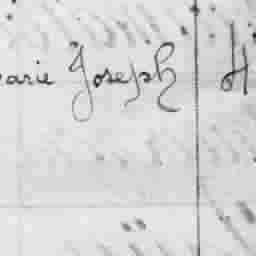 arie Joseph H